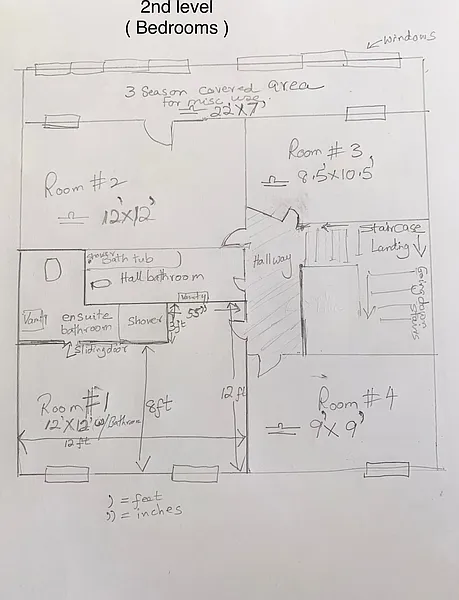 2nd level
( Bedrooms )
windows
3 Season covered area
for misc use.
22'X7'
Room # 3
8.5'X10.5'
Room # 2
12'X12'
Staircase
Landing
Hallway
Going down
Stairs
shower
bath tub
Hall bathroom
Vanity
Vanity
ensuite
bathroom
Shower
3ft
55"
Sliding door
Room #1
12'X12' w/Bathroom
12 ft
8ft
12 ft
Room # 4
9'X 9'
' = feet
" = inches